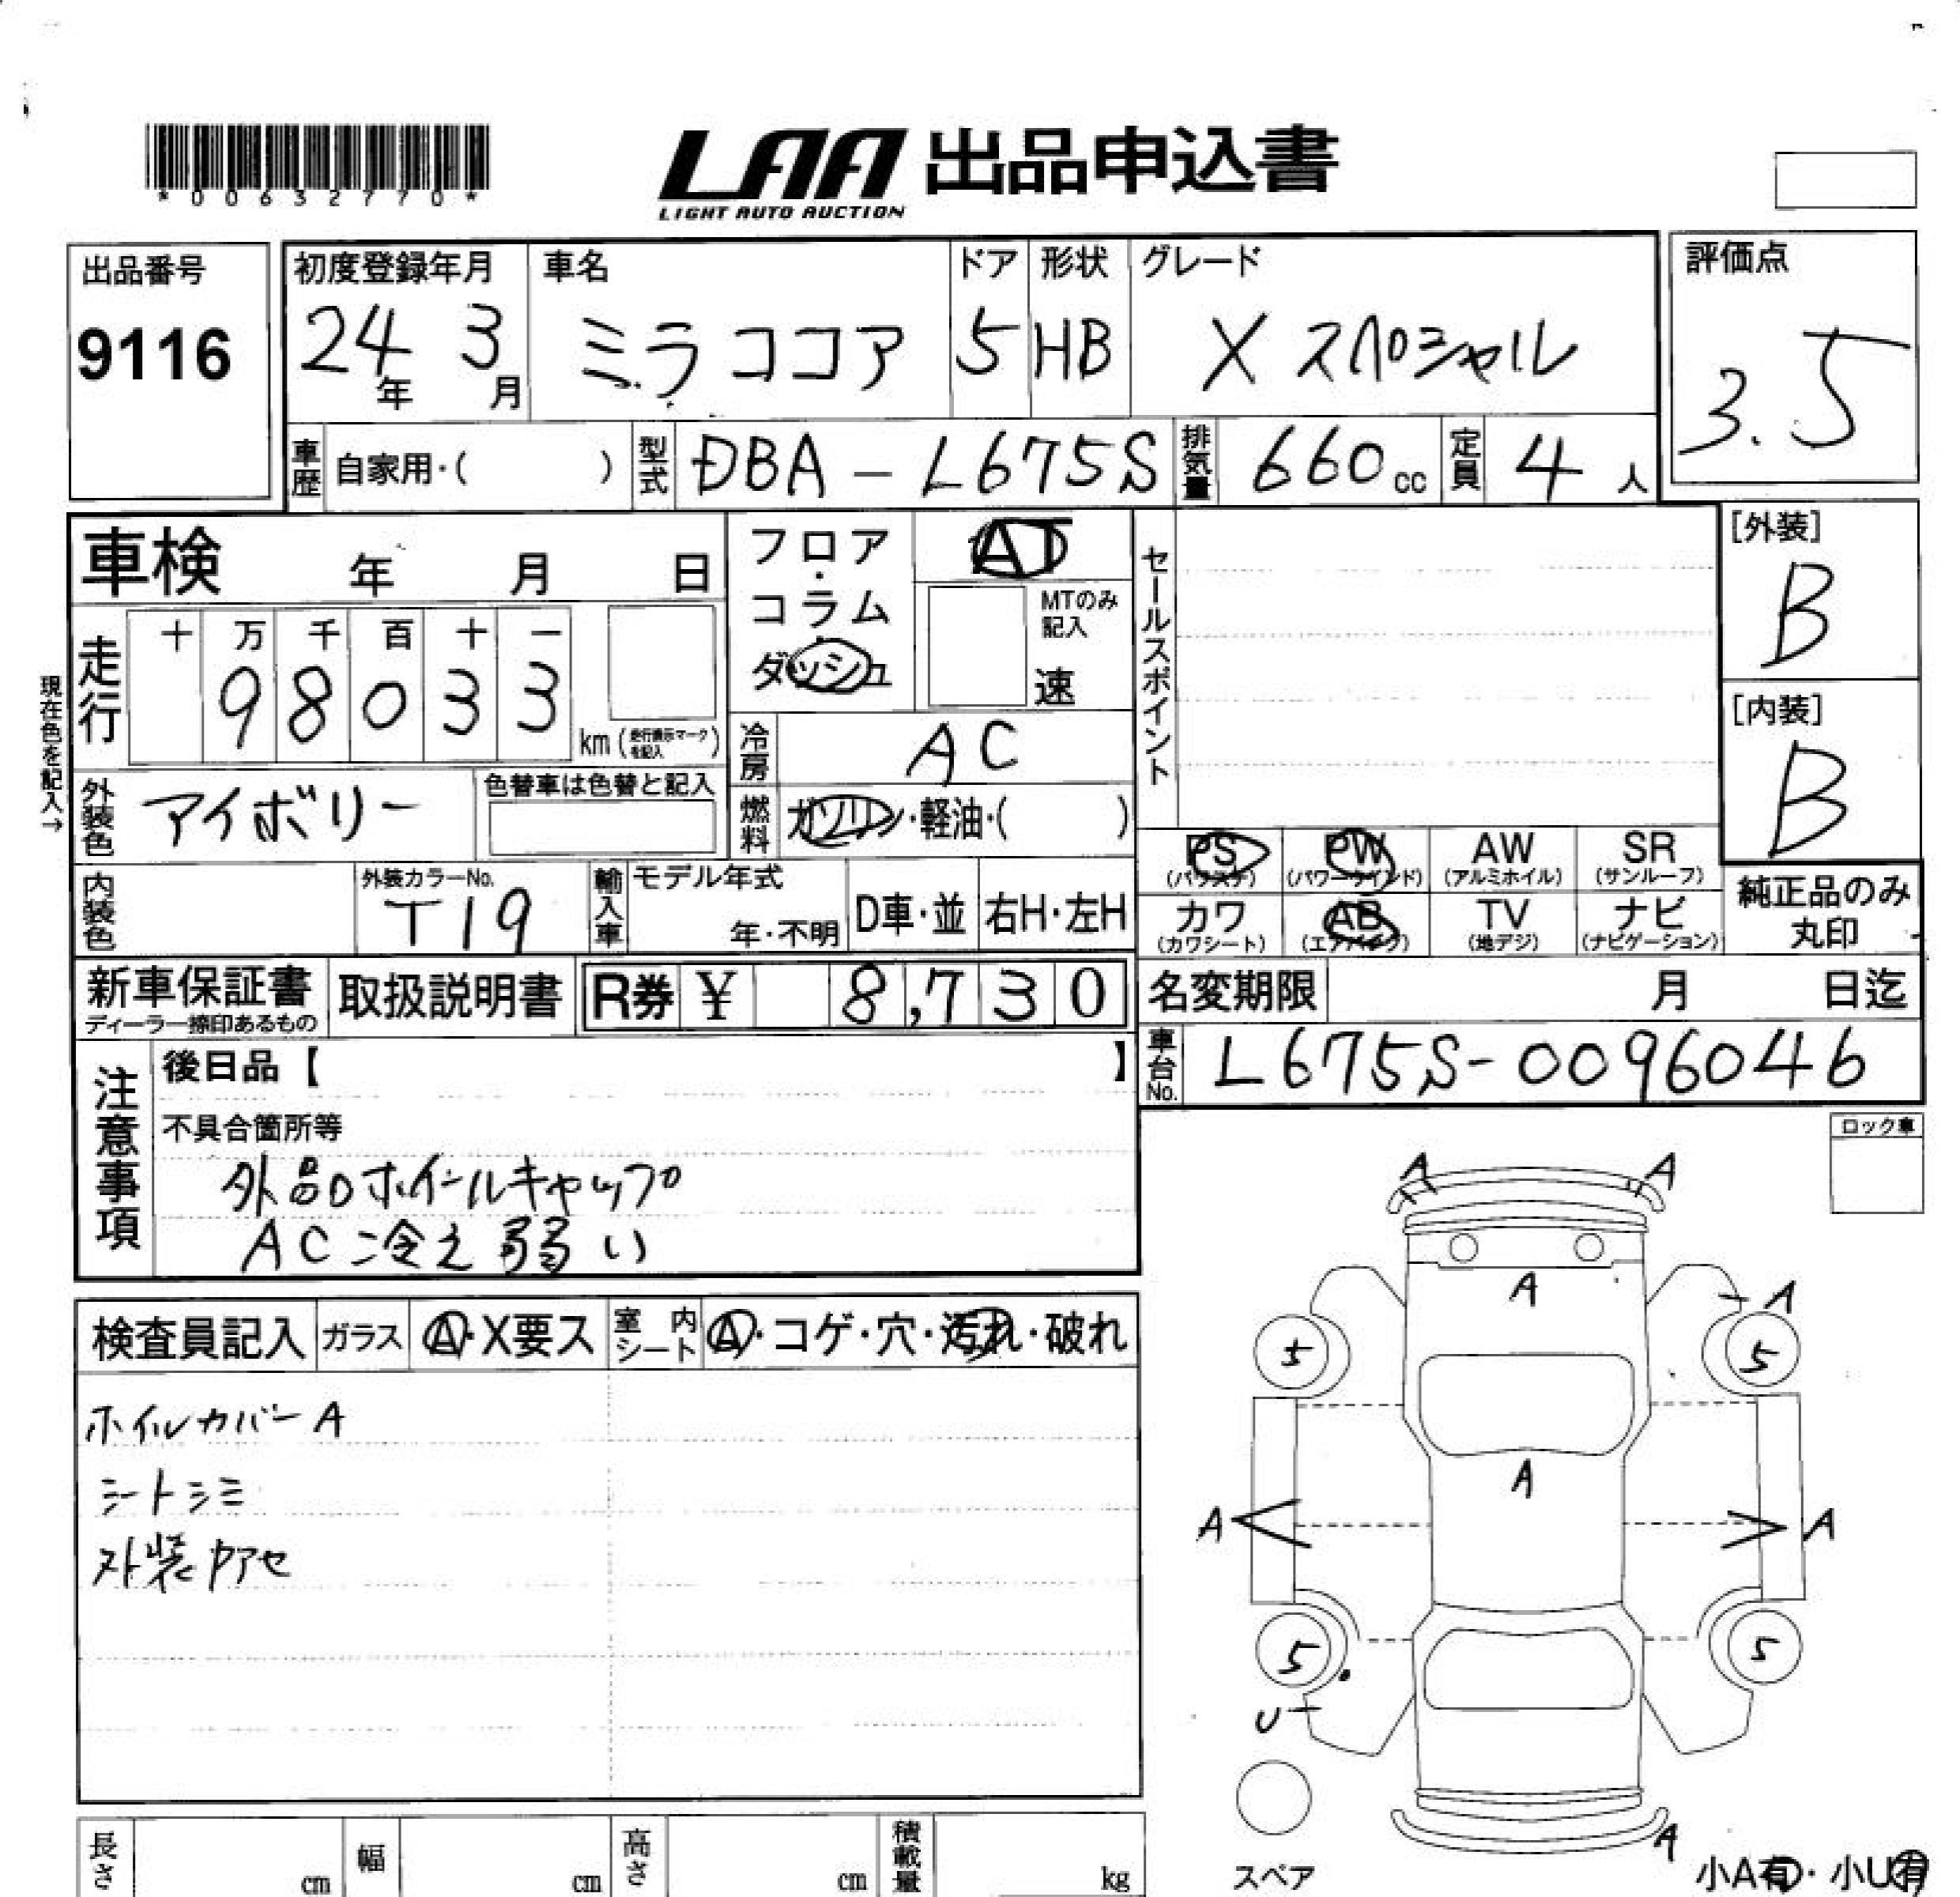 *00632770*
LAA 出品申込書
LIGHT AUTO AUCTION
出品番号
9116
初度登録年月
24年 3月
車名
ミラココア
ドア
5
形状
HB
グレード
X スペシャル
評価点
3.5
車歴 自家用・( )
型式 DBA-L675S
排気量 660cc
定員 4人
車検 年 月 日
フロア・コラム
ダッシュ
AT
MTのみ記入
速
セールスポイント
[外装]
B
[内装]
B
現在色を記入→
走行
十 万 千 百 十 一
9 8 0 3 3
km (走行表示マークを記入)
冷房 AC
外装色 アイボリー
色替車は色替と記入
燃料 ガソリン・軽油・( )
内装色
外装カラーNo.
T19
輸入車
モデル年式
年・不明
D車・並
右H・左H
PS (パワステ)
PW (パワーウインド)
AW (アルミホイル)
SR (サンルーフ)
カワ (カワシート)
AB (エアバッグ)
TV (地デジ)
ナビ (ナビゲーション)
純正品のみ丸印
新車保証書
ディーラー捺印あるもの
取扱説明書
R券 ¥ 8,730
名変期限 月 日迄
車台No. L675S-0096046
注意事項
後日品【 】
不具合箇所等
外品ホイールキャップ
AC冷え弱い
ロック車
検査員記入
ガラス A・X要ス
室内シート A・コゲ・穴・汚れ・破れ
ホイルカバーA
シートシミ
外装カアセ
A A
A
A
5 5
A
A A
5 5
U
A
スペア
小A有・小U有
長さ cm
幅 cm
高さ cm
積載量 kg